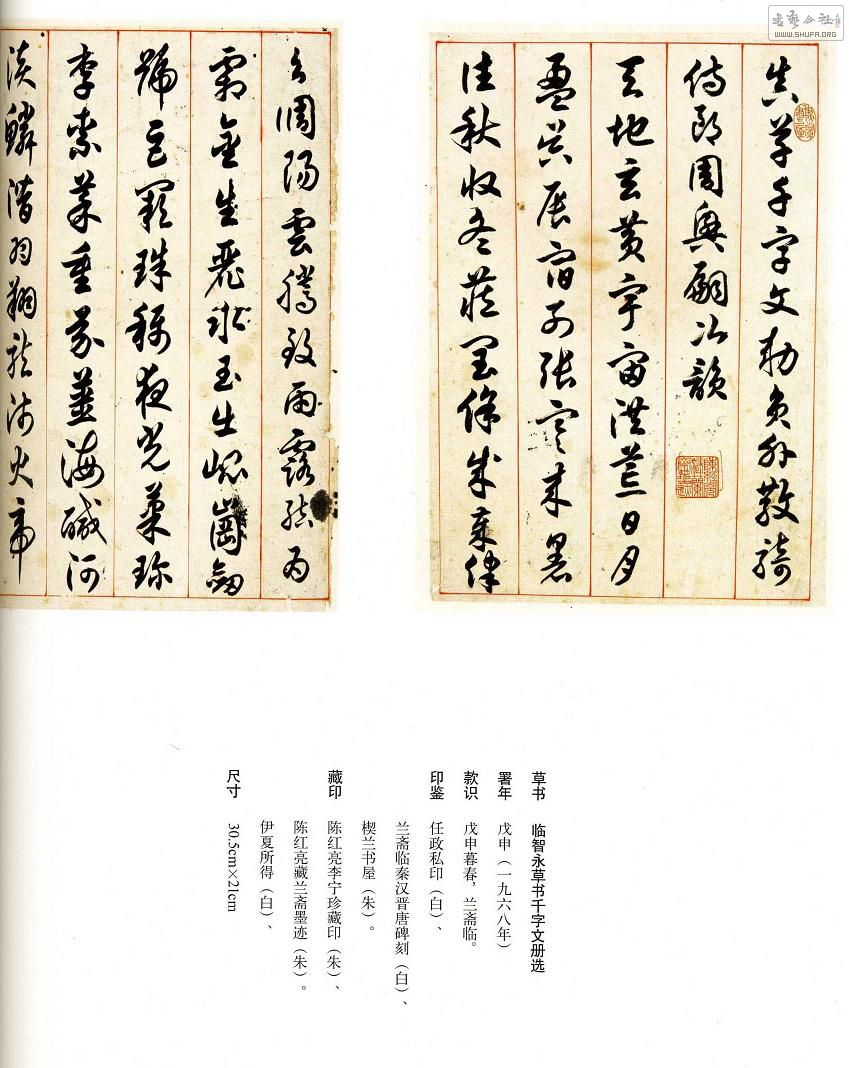 書藝公社
WWW.SHUFA.ORG
真草千字文勅員外散騎
侍郎周興嗣次韻
天地玄黃宇宙洪荒日月
盈昃辰宿列張寒来暑
往秋收冬藏閏餘成歲律
呂調陽雲騰致雨露結為
霜金生麗水玉出崐崗劔
號巨闕珠稱夜光菓珎
李柰菜重芥薑海醎河
淡鱗潛羽翔龍師火帝
草书 临智永草书千字文册选
署年 戊申（一九六八年）
款识 戊申暮春，兰斋临。
印鉴 任政私印（白）、
兰斋临秦汉晋唐碑刻（白）、
楔兰书屋（朱）。
藏印 陈红亮李宁珍藏印（朱）、
陈红亮藏兰斋墨迹（朱）。
伊夏所得（白）、
尺寸 30.5cm×21cm